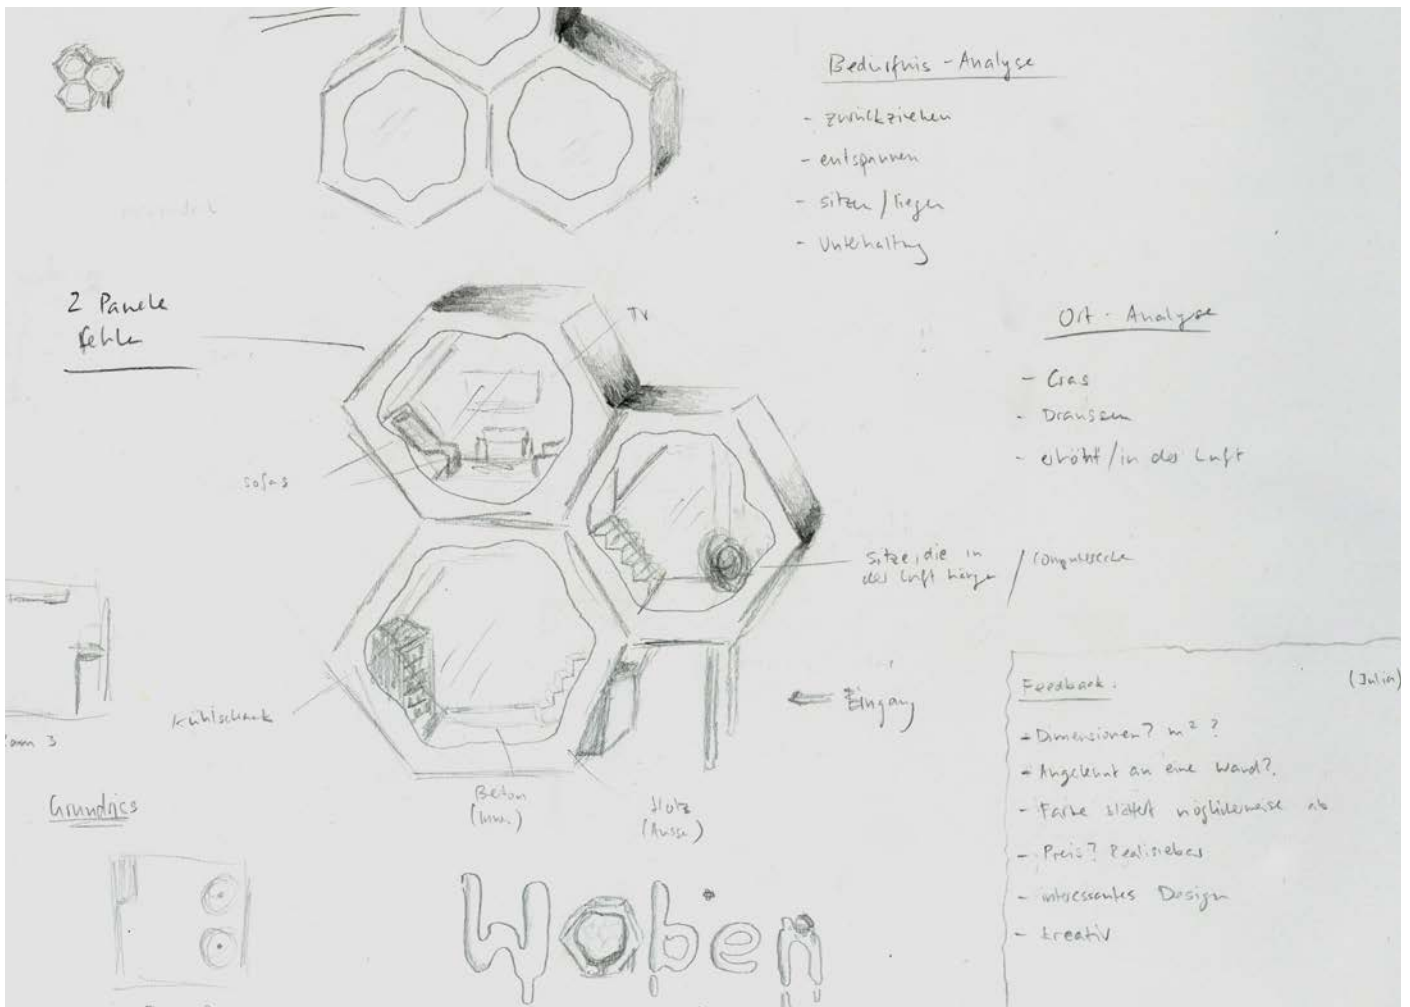 Bedürfnis - Analyse
- zurückziehen
- entspannen
- sitzen / liegen
- Unterhaltung
2 Panele
fehlen
TV
Ort - Analyse
- Gras
- Draussen
- erhöht / in der Luft
sofas
sitze, die in
der Luft hängen
/ Computerecke
Eingang
Kühlschrank
Beton
(Innen)
Holz
(Aussen)
Feedback:
(Julia)
- Dimensionen? m² ?
- Angelehnt an eine Wand?
- Farbe blättert möglicherweise ab
- Preis? Realisierbar
- interessantes Design
- kreativ
3
Grundriss
Waben